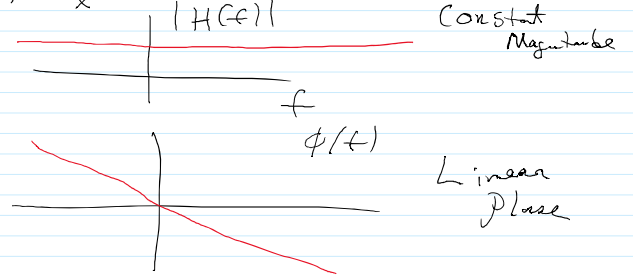 x
|H(f)|
Constat
Magnitube
f
φ(f)
Linear
Phase